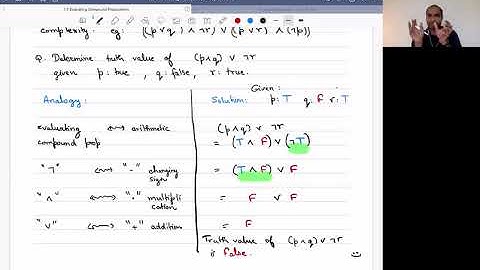 1.7 Evaluating Compound Propositions
complexity: eg: ((p∨q) ∧ ¬r) ∨ (p∨¬r) ∧ (¬p)
Q. Determine truth value of (p∧q) ∨ ¬r
given p: true, q: false, r: true.
Analogy:
evaluating ⟷ arithmetic
compound prop
"¬" ⟷ "-" changing sign
"∧" ⟷ "·" multipli cation
"∨" ⟷ "+" addition
Solution: Given: p: T q: F r: T
(p∧q) ∨ ¬r
= (T ∧ F) ∨ (¬T)
= (T ∧ F) ∨ F
= F ∨ F
= F
Truth value of (p∧q) ∨ ¬r
is False.